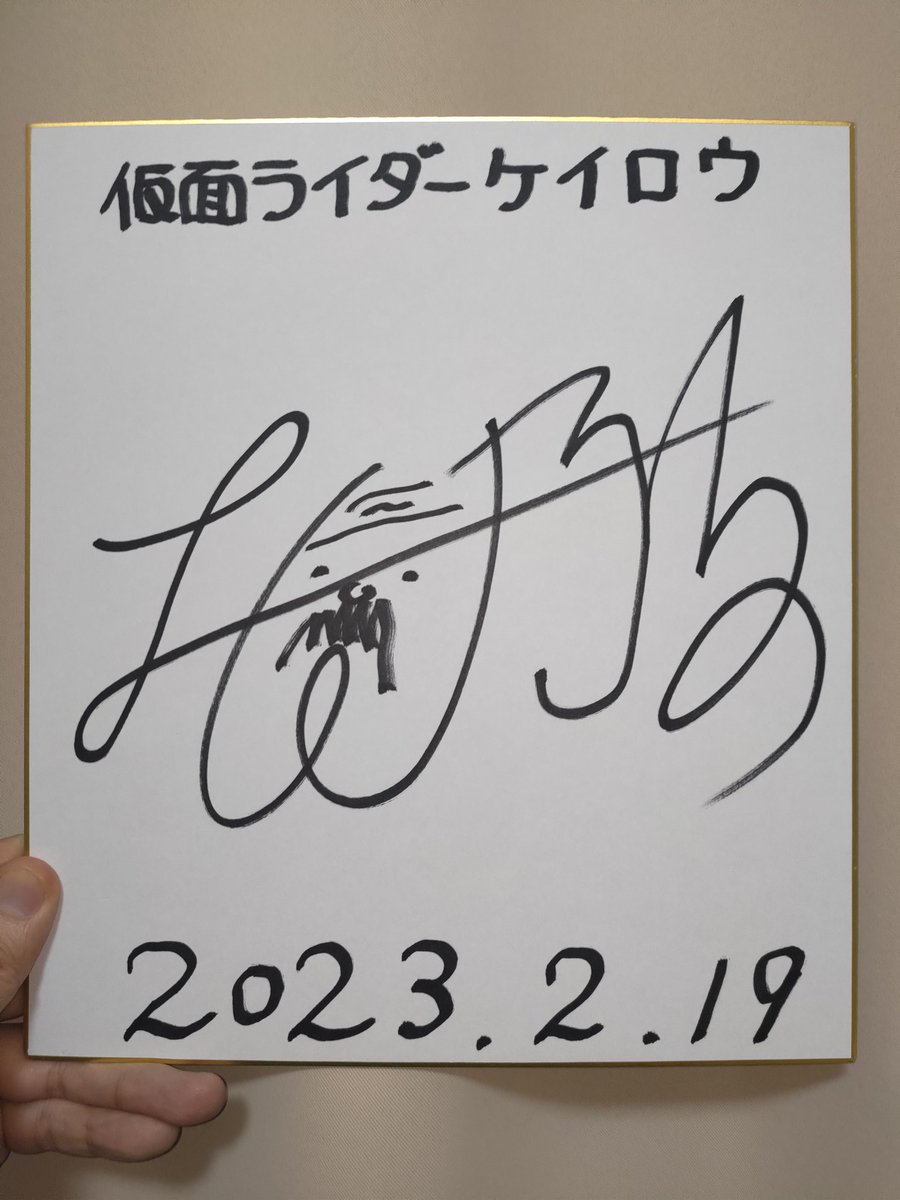 仮面ライダーケイロウ
2023.2.19